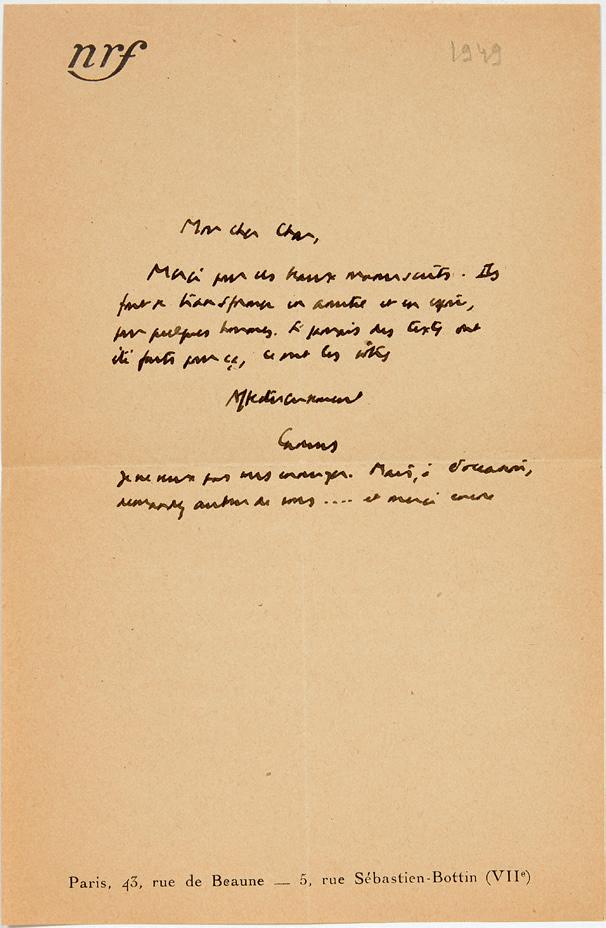 nrf
1949
Mon cher Char,
Merci pour ces beaux manuscrits. Ils
font se transformer en amitié et en espoir,
pour quelques hommes. Si jamais des textes ont
été faits pour ça, ce sont les vôtres
Affectueusement
Camus
Je ne veux pas vous ennuyer. Mais, à l'occasion,
demandez autour de vous .... et merci encore
Paris, 43, rue de Beaune — 5, rue Sébastien-Bottin (VIIe)